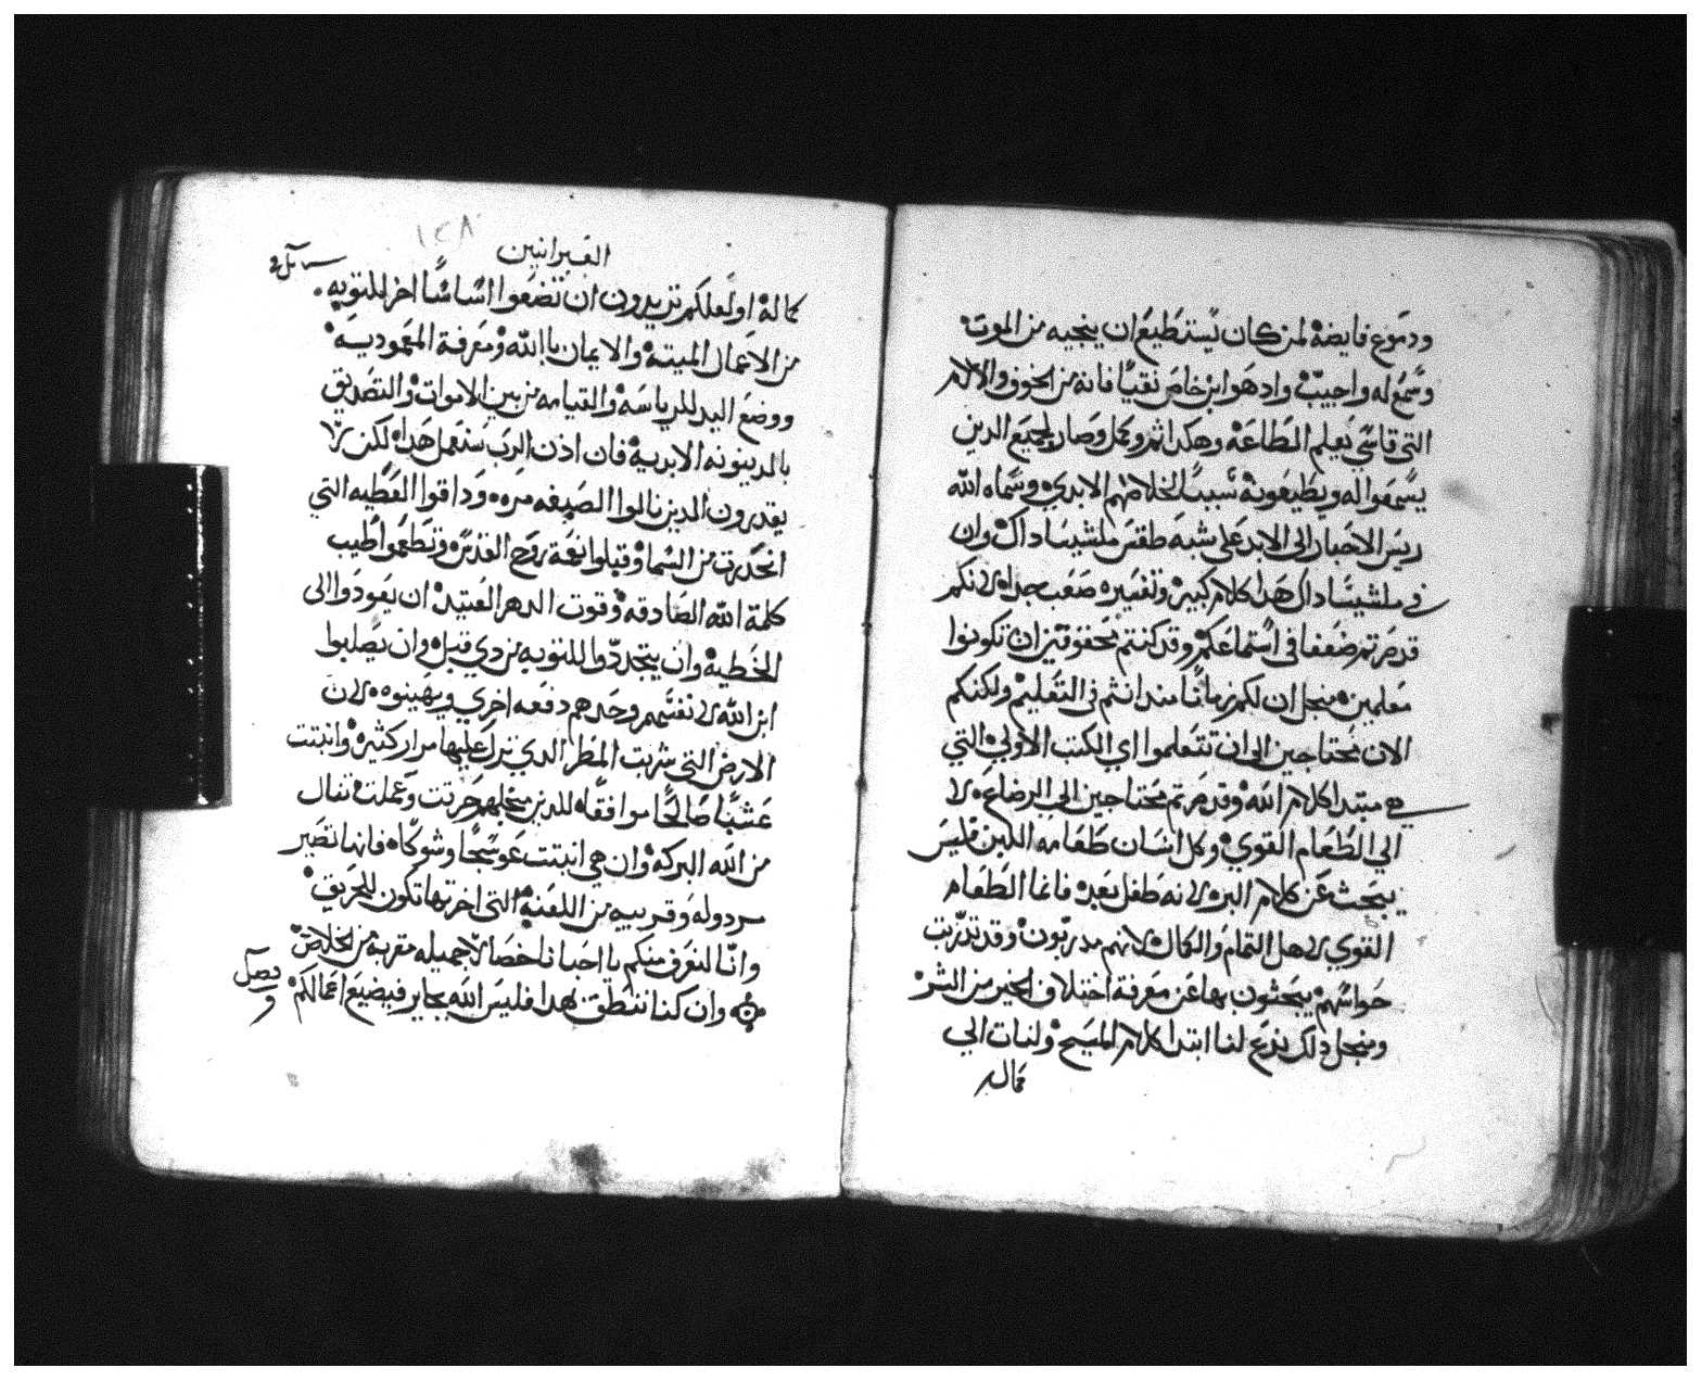 ودموع فايضة لمن كان يستطيع ان ينجيه من الموت
وسمع له واجيب واد هو ابن خاص نقيا فانه من الخوف والالام
التي قاسي تعلم الطاعة وهكدا اثم وكمل وصار لجميع الدين
يسمعوا له ويطيعونه سببا لخلاصهم الابدي وسماه الله
ريس الاحبار الى الابد على شبه طقس ملشيساداك وان
في ملشيساداك هدا كلام كبير وتفسيره صعب جدا لانكم
قد صرتم ضعفا في استماعكم وقد كنتم تحققوقين ان تكونوا
معلمين منجل ان لكم زمانا مند انتم في التعليم ولكنكم
الان محتاجين الى ان تتعلموا اي الكتب الاولي التي
هي مبتدا كلام الله وقد صرتم محتاجين الي الرضاعه لا
الي الطعام القوي وكل انسان طعامه اللبن فليس
يبحث عن كلام البر لانه طفل بعد فاما الطعام
القوي لاهل التمام والكمال لانهم مدربون وقد تدربت
حواسهم يبحثون بها عن معرفة اختلاف الخير من الشر
ومنجل دلك ندع لنا ابتدا كلام المسيح ولنات الي
كماله
العبرانيين
١٤٨
كماله او لعلكم تريدون ان تضعوا اساسا اخر للتوبه
من الاعمال الميته والايمان باالله ومعرفة المعموديه
ووضع اليد للرياسه والقيامه من بين الاموات والتصديق
بالدينونه الابديه فان ادن الرب سنعمل هدا لكن لا
يقدرون الدين نالوا الصبغه مره وداقوا العطيه التي
انحدرت من السما وقبلوا نعمة روح القدس وتطعموا طيب
كلمة الله الصادقه وقوت الدهر العتيد ان يعودوا الى
الخطيه وان يتجددوا للتوبه من دي قبل وان يصلبوا
ابن الله لانفسهم وحدهم دفعه اخري ويهينوه لان
الارض التي شربت المطر الدي نزل عليها مرار كثيره وانبتت
عشبا صالحا موافقا للدين منجلهم حرتت وعملت تنال
من الله البركه وان هي انبتت عوسجا وشوكا فانها تصير
مردوله وقريبه من اللعنه التي اخرتها تكون للحريق
وانا لنعرف منكم يا احبانا خصالا جميله مقربه من الخلاص
وان كنا ننطق بهدا فليس الله بجاير فيضيع اعمالكم